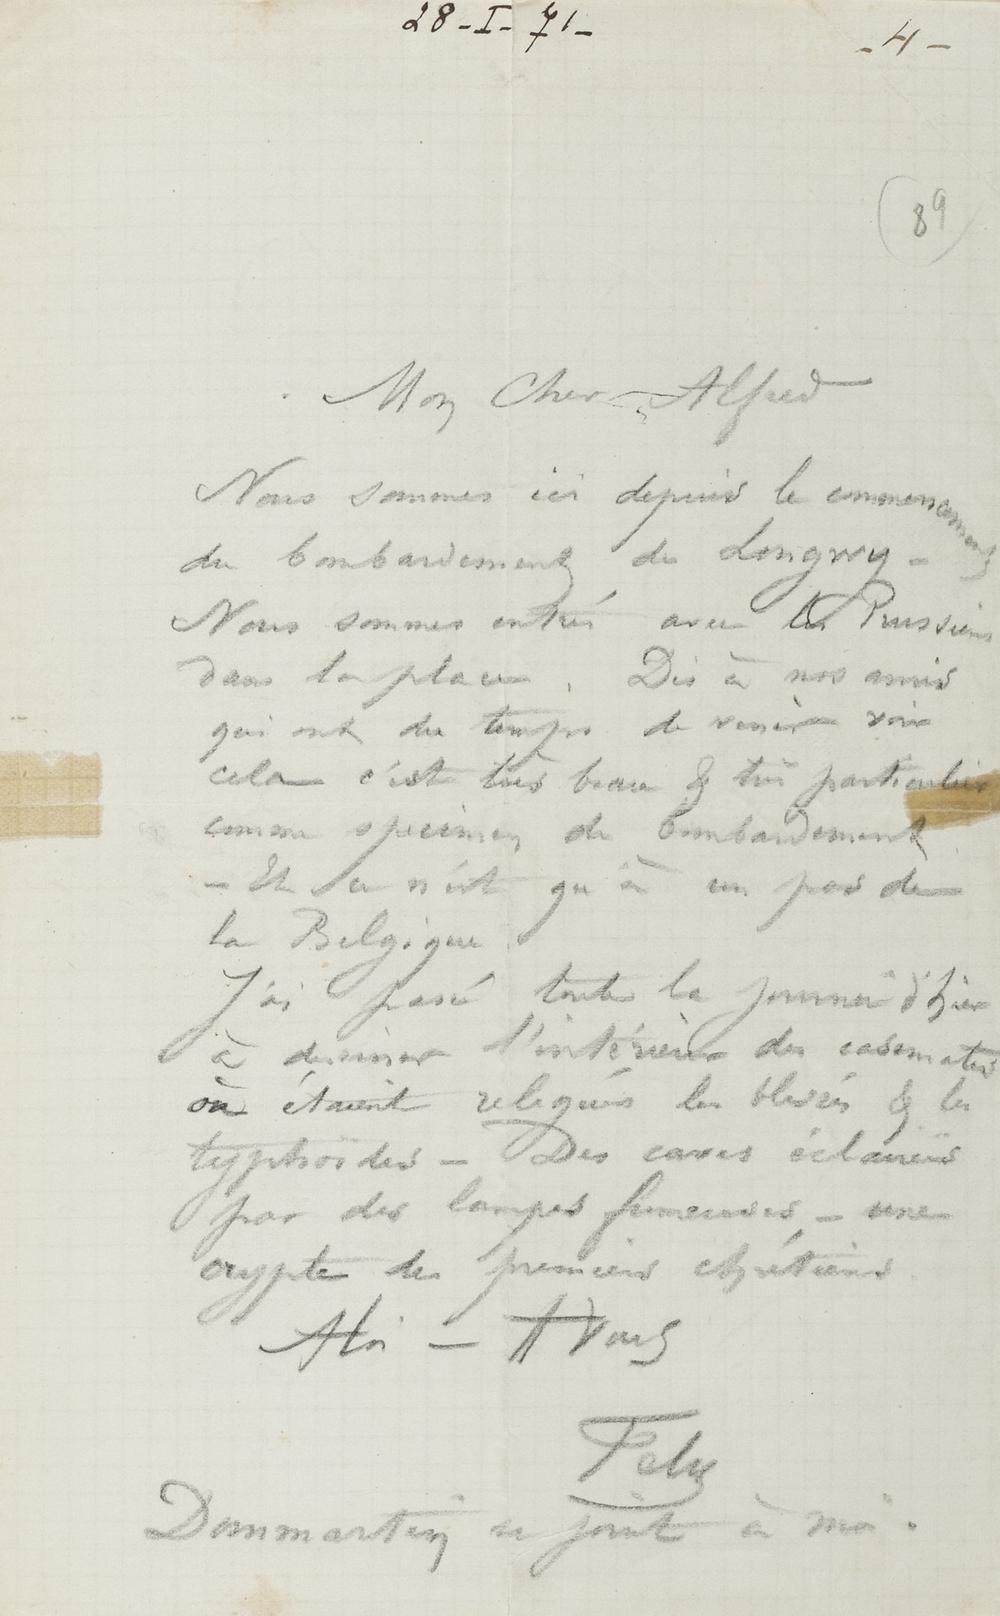 28-I-71-
- 4 -
89
Mon Cher Alfred
Nous sommes ici depuis le commencement
du bombardement de Longwy -
Nous sommes entrés avec les Prussiens
dans la place. Dis à nos amis
qui ont du temps de venir voir
cela c'est très beau & très particulier
comme specimen de bombardement
- Et ce n'est qu'à un pas de
la Belgique.
J'ai passé toute la journée d'hier
à dessiner l'intérieur des casemates
où étaient relegués les blessés & les
typhoïdes - Des caves éclairées
par des lampes fumeuses - une
crypte des premiers chrétiens.
A toi - A Vous
Fély
Dommartin se joint à moi.